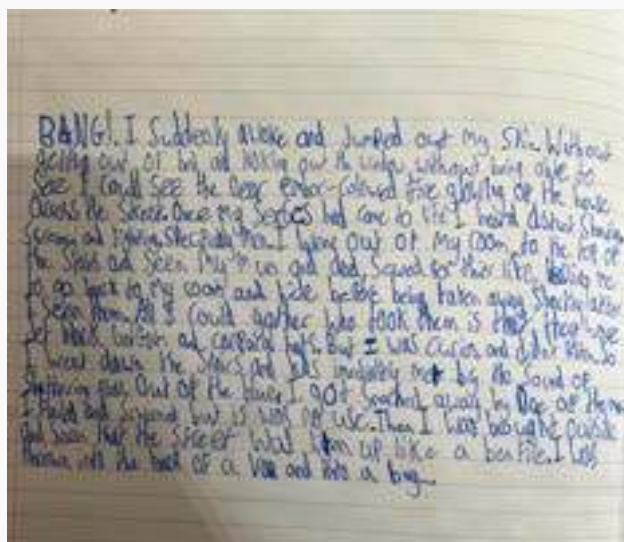 BANG!. I Suddenly awoke and Jumped out my Skin. Without
getting out of bed and looking out the window, without being able to
See I could See the deep ember-coloured fire glowing of the house
across the Street. Once my Senses had come to life I heard distant
Screaming and I went out of my room, to the top of
the Stairs and Seen my mum and dad, Scared for their life, telling me
to go back to my room and hide before being taken away Shortly after
I Seen them. All I could gather who took them is that they
black and hats. But I was curious and didn't listen So
I went down the Stairs and was immediately met by the Sound of
Shattering glass. Out of the blue, I got Snatched away by one of them.
I and Screamed but it was no use. Then I was brought outside
and Seen that the Street was up like a bonfire. I was
thrown into the back of a van and into a bag.